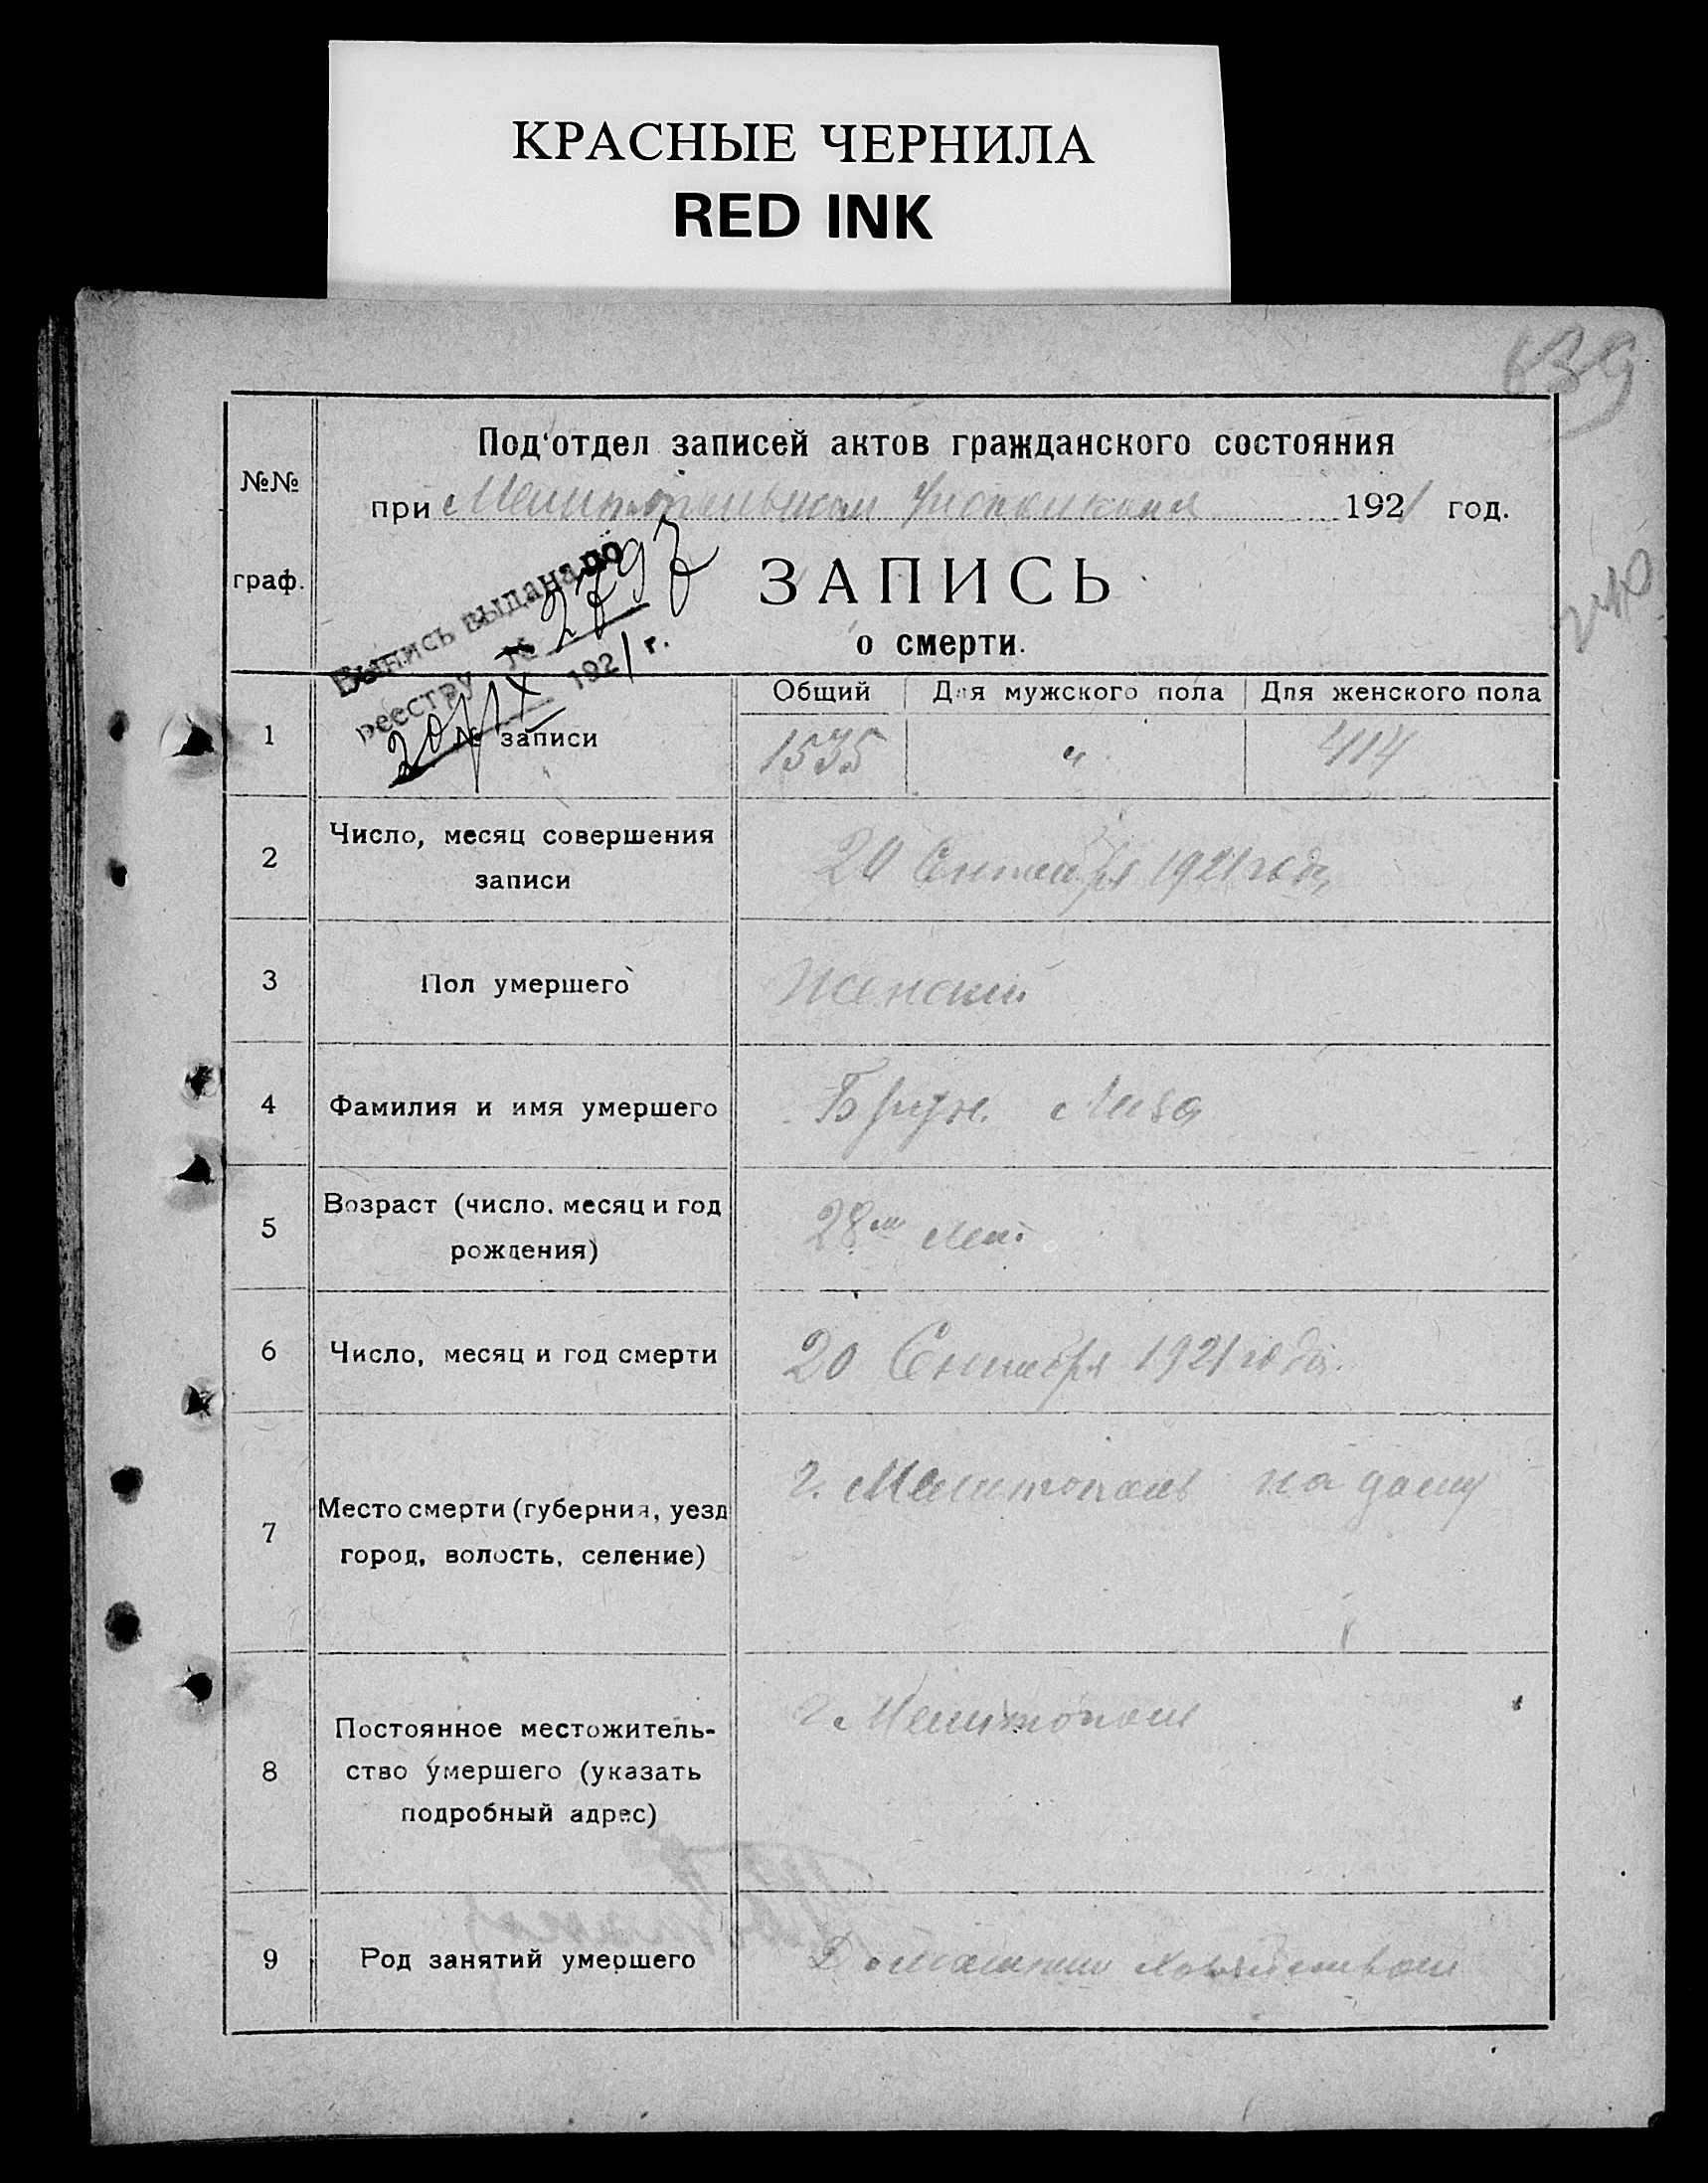 КРАСНЫЕ ЧЕРНИЛА
RED INK
639
Под'отдел записей актов гражданского состояния
№№
при Мелитопольском Уисполкоме 1921 год.
граф.
ЗАПИСЬ
о смерти.
Выпись выдана по
реестру №
20/IX 1921 г.
Общий Для мужского пола Для женского пола
1 № записи 1535 " 414
2 Число, месяц совершения
записи
20 Сентября 1921 года
3 Пол умершего Женский
4 Фамилия и имя умершего Лиза
5 Возраст (число, месяц и год
рождения)
28 лет
6 Число, месяц и год смерти 20 Сентября 1921 года.
7 Место смерти (губерния, уезд
город, волость, селение)
г. Мелитополь на дому
8 Постоянное местожитель-
ство умершего (указать
подробный адрес)
г. Мелитополь
9 Род занятий умершего Домашним хозяйством